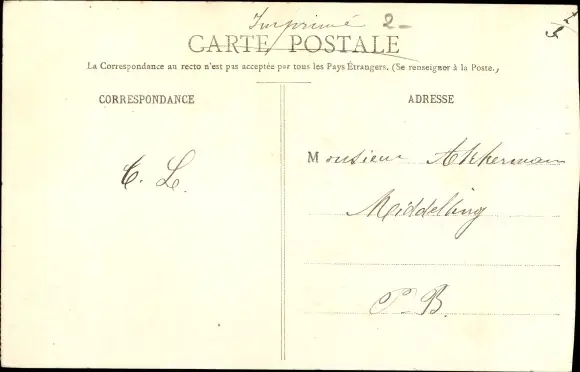 Imprimé 2-
CARTE POSTALE
La Correspondance au recto n'est pas acceptée par tous les Pays Étrangers. (Se renseigner à la Poste.)
CORRESPONDANCE
C. L.
ADRESSE
Monsieur Akkermann
Middelburg
P-B.